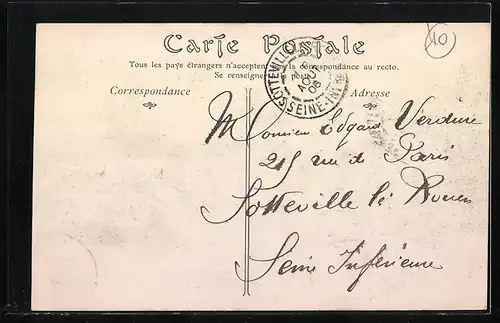 10
Carte Postale
Tous les pays étrangers n'acceptent la correspondance au recto.
Se renseigner à la poste
Correspondance
Adresse
SOTTEVILLE
AOUT
06
SEINE-INF
Monsieur Edgard Verdure
215 rue de Paris
Sotteville lè Rouen
Seine Inférieure